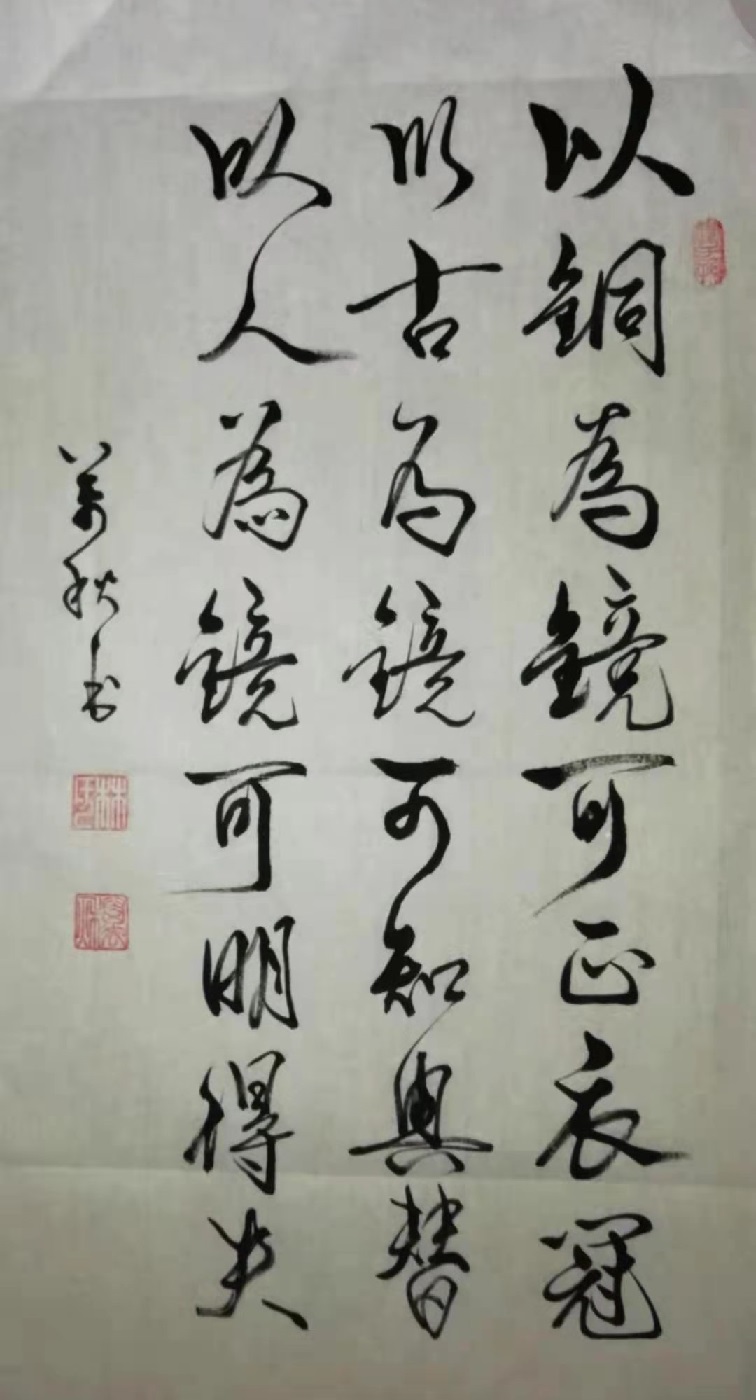 以銅為鏡可正衣冠
以古為鏡可知興替
以人為鏡可明得失
萬秋書